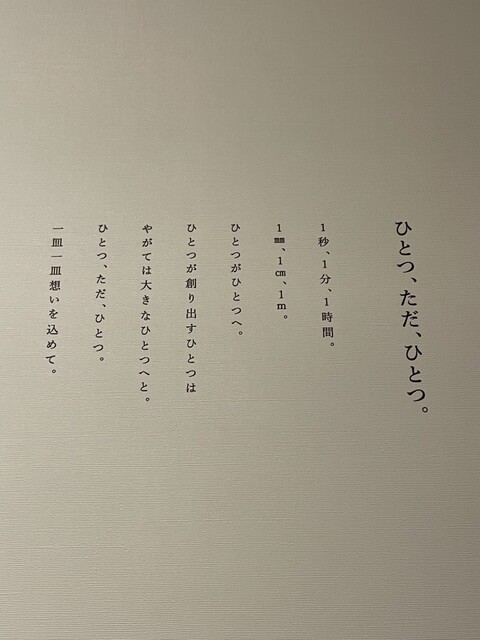 ひとつ、ただ、ひとつ。
1秒、1分、1時間。
1㎜、1㎝、1m。
ひとつがひとつへ。
ひとつが創り出すひとつは
やがては大きなひとつへと。
ひとつ、ただ、ひとつ。
一皿一皿想いを込めて。